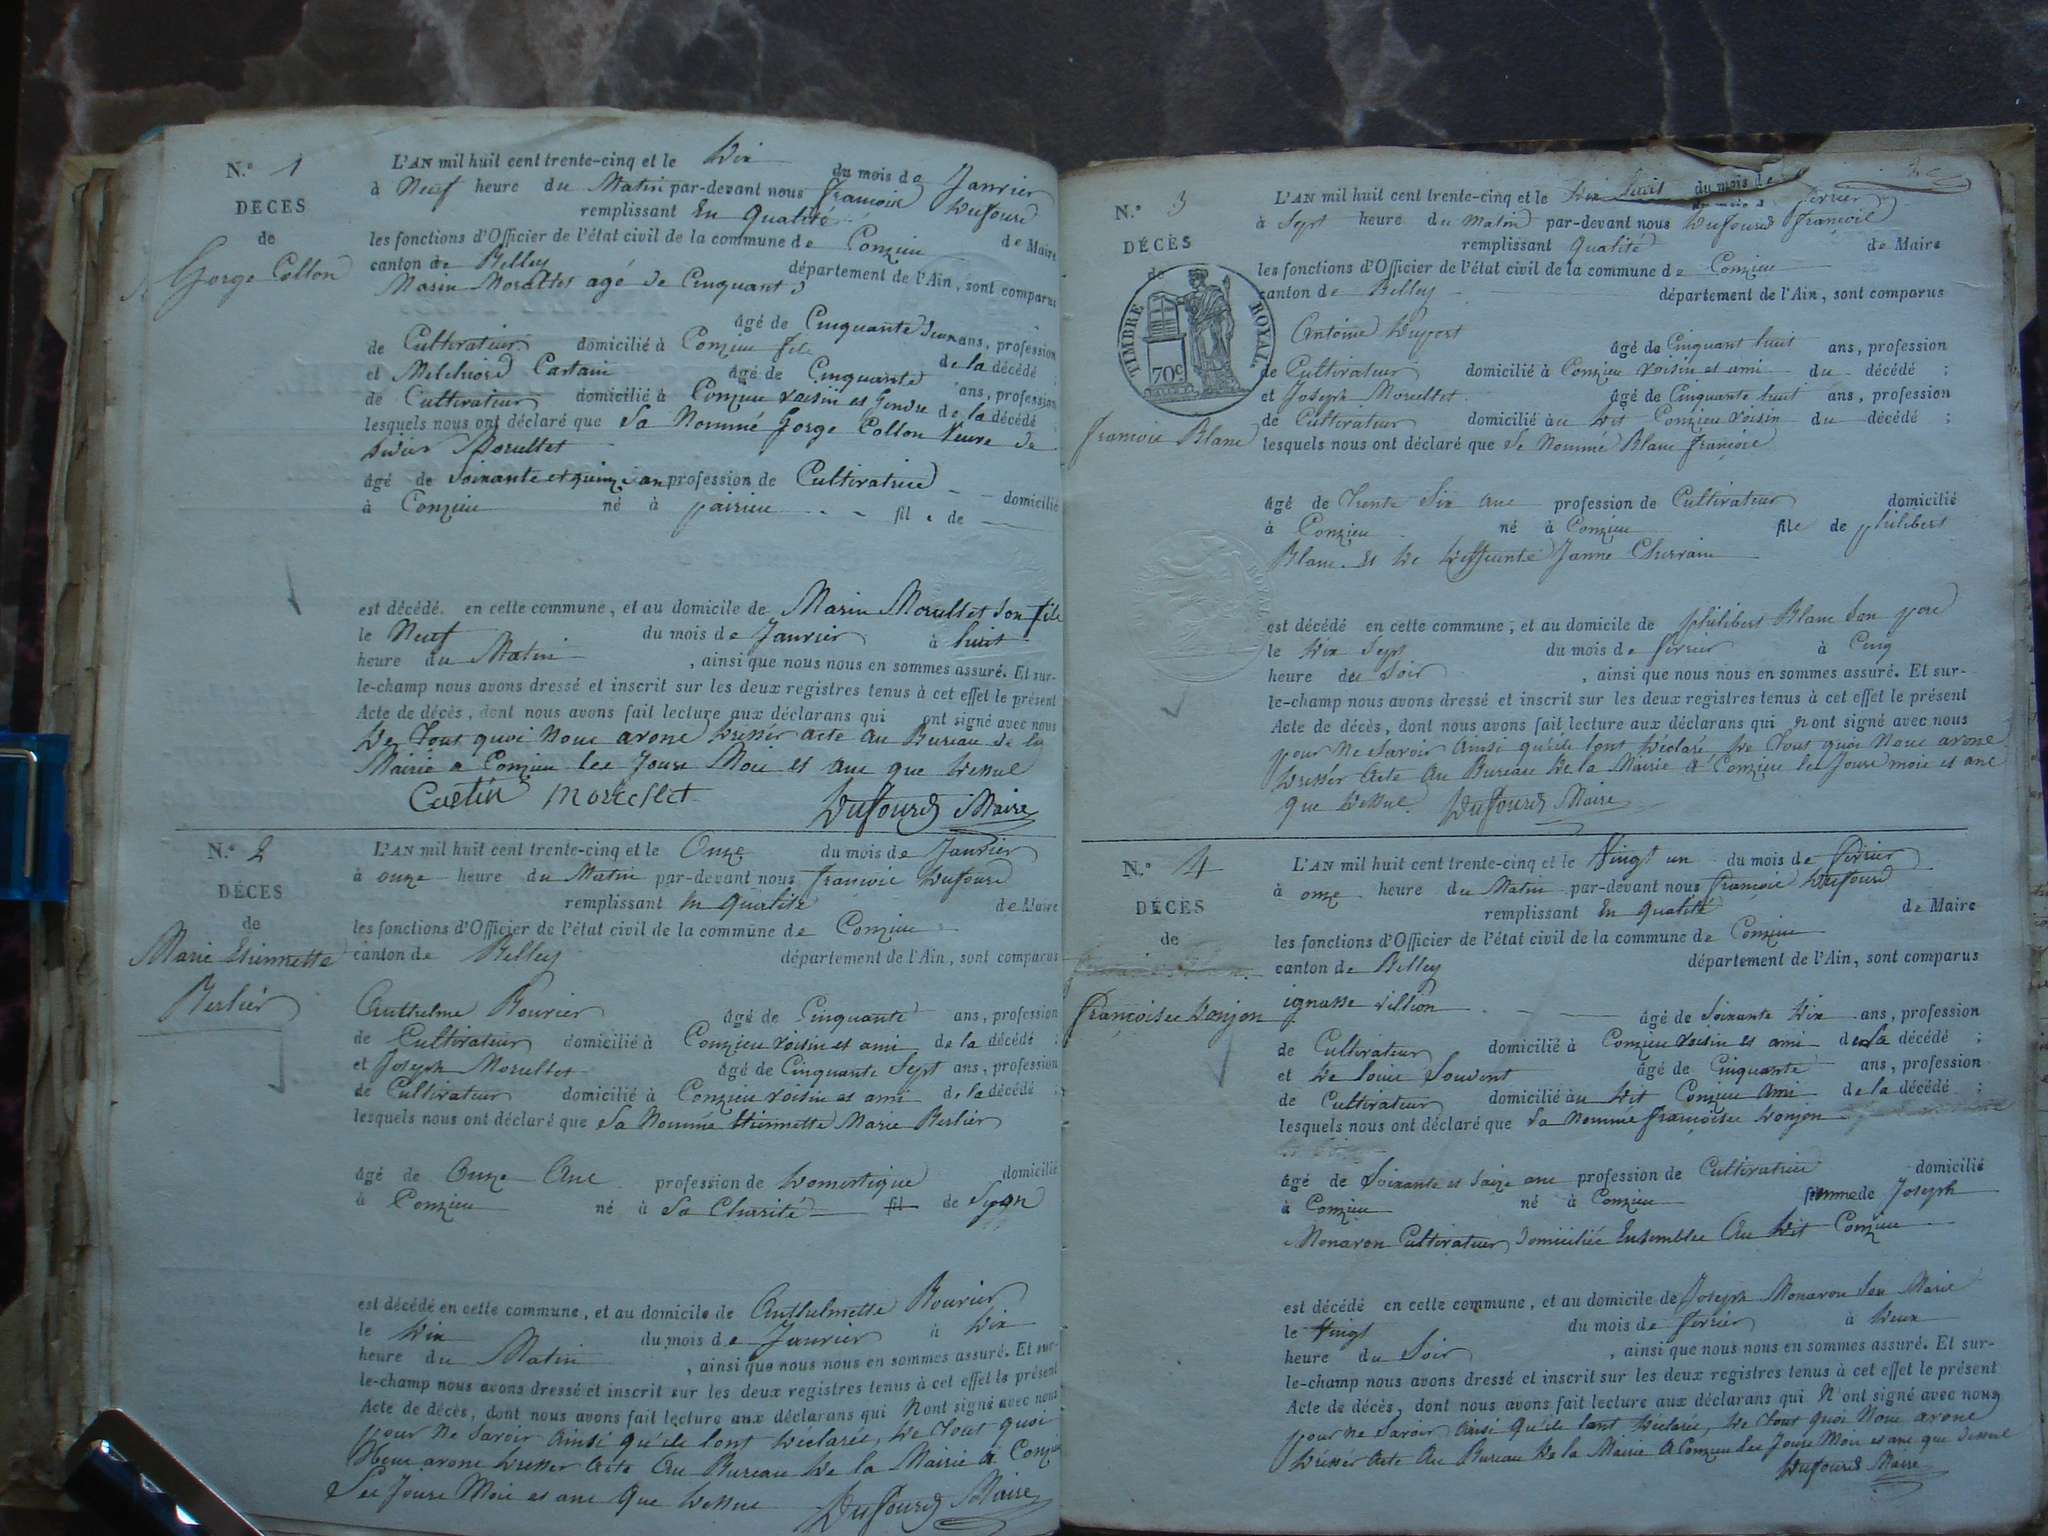 N.° 1
DÉCÈS
de
Gorge Collon
L'AN mil huit cent trente-cinq et le Dix du mois de Janvier
à Neuf heure du Matin par-devant nous françois Dufourd
remplissant En Qualité de Maire
les fonctions d'Officier de l'état civil de la commune de Conzieu
canton de Belley département de l'Ain, sont comparus
Marin Morellet agé de Cinquant
âgé de Cinquante deux ans, profession
de Cultivateur domicilié à Conzieu fils de la décédé ;
et Melchiord âgé de Cinquante ans, profession
de Cultivateur domicilié à Conzieu voisin et Gendre de la décédé ;
lesquels nous ont déclaré que La Nommé Gorge Collon Veuve de
Morellet
âgé de Soixante et quinze ans profession de Cultivatrice domicilié
à Conzieu né à fil de
est décédé en cette commune, et au domicile de Marin Morellet Son fils
le Neuf du mois de Janvier à huit
heure du Matin, ainsi que nous nous en sommes assuré. Et sur-
le-champ nous avons dressé et inscrit sur les deux registres tenus à cet effet le présent
Acte de décès, dont nous avons fait lecture aux déclarans qui ont signé avec nous
De Tout quoi Nous avons Dressér acte Au Bureau de la
Mairie a Conzieu les Jours Mois et ans que Dessus
Morellet Dufourd Maire
N.° 2
DÉCÈS
de
Marie Etiennette
Berlier
L'AN mil huit cent trente-cinq et le Onze du mois de Janvier
à onze heure du Matin par-devant nous françois Dufourd
remplissant En Qualité de Maire
les fonctions d'Officier de l'état civil de la commune de Conzieu
canton de Belley département de l'Ain, sont comparus
Anthelme Bouvier âgé de Cinquante ans, profession
de Cultivateur domicilié à Conzieu voisin et ami de la décédé ;
et Joseph Morellet âgé de Cinquante Sept ans, profession
de Cultivateur domicilié à Conzieu voisin et ami de la décédé ;
lesquels nous ont déclaré que La Nommé Etiennette Marie Berlier
âgé de Onze Ans profession de Domestique domicilié
à Conzieu né à La Charité fil de Lyon
est décédé en cette commune, et au domicile de Anthelmette Bouvier
le Dix du mois de Janvier à Dix
heure du Matin, ainsi que nous nous en sommes assuré. Et sur-
le-champ nous avons dressé et inscrit sur les deux registres tenus à cet effet le présent
Acte de décès, dont nous avons fait lecture aux déclarans qui N'ont signé avec nous
pour Ne Savoir Ainsi qu'ils lont Déclarée, De Tout quoi
Nous avons Dresser Acte Au Bureau De la Mairie à
Les Jours Mois et ans Que Dessus Dufourd Maire
N.° 3
DÉCÈS
de
TIMBRE ROYAL
70c
françois Blanc
L'AN mil huit cent trente-cinq et le Dix huit du mois de fevrier
à Sept heure du Matin par-devant nous Dufourd françois
remplissant Qualité de Maire
les fonctions d'Officier de l'état civil de la commune de Conzieu
canton de Belley département de l'Ain, sont comparus
Antoine Duport
âgé de Cinquant huit ans, profession
de Cultivateur domicilié à Conzieu voisin et ami du décédé ;
et Joseph Morellet âgé de Cinquante huit ans, profession
de Cultivateur domicilié au Dit Conzieu voisin du décédé ;
lesquels nous ont déclaré que Le Nommé Blanc françois
âgé de Trente Six ans profession de Cultivateur domicilié
à Conzieu né à Conzieu fils de philibert
Blanc et De Deffeunte Janne
est décédé en cette commune, et au domicile de philibert Blanc Son pere
le Dix Sept du mois de fevrier à Cinq
heure du Soir, ainsi que nous nous en sommes assuré. Et sur-
le-champ nous avons dressé et inscrit sur les deux registres tenus à cet effet le présent
Acte de décès, dont nous avons fait lecture aux déclarans qui n'ont signé avec nous
pour Ne Savoir Ainsi qu'ils lont Déclaré, De Tout quoi Nous avons
Dressér Acte Au Bureau De la Mairie à Conzieu les Jours mois et ans
que Dessus. Dufourd Maire
N.° 4
DÉCÈS
de
françoise Donjon
L'AN mil huit cent trente-cinq et le Vingt un du mois de fevrier
à onze heure du Matin par-devant nous françois Dufourd
remplissant En Qualité de Maire
les fonctions d'Officier de l'état civil de la commune de Conzieu
canton de Belley département de l'Ain, sont comparus
ignasse Villion âgé de Soixante Dix ans, profession
de Cultivateur domicilié à Conzieu voisin et ami de la décédé ;
et De louis Souvent âgé de Cinquante ans, profession
de Cultivateur domicilié au Dit Conzieu Ami de la décédé ;
lesquels nous ont déclaré que La Nommé françoise Donjon
âgé de Soixante et Saize ans profession de Cultivatrice domicilié
à Conzieu né à Conzieu femme de Joseph
Monaron Cultivateur Domiciliée Ensemblee Au Dit Conzieu
est décédé en cette commune, et au domicile de Joseph Monaron Son Marie
le Vingt du mois de fevrier à Deux
heure du Soir, ainsi que nous nous en sommes assuré. Et sur-
le-champ nous avons dressé et inscrit sur les deux registres tenus à cet effet le présent
Acte de décès, dont nous avons fait lecture aux déclarans qui N'ont signé avec nous
pour ne Savoir Ainsi Qu'ils lont Déclarée, De Tout quoi Nous avons
Dressér Acte Au Bureau De la Mairie A Conzieu les Jours Mois et ans que Dessus
Dufourd Maire